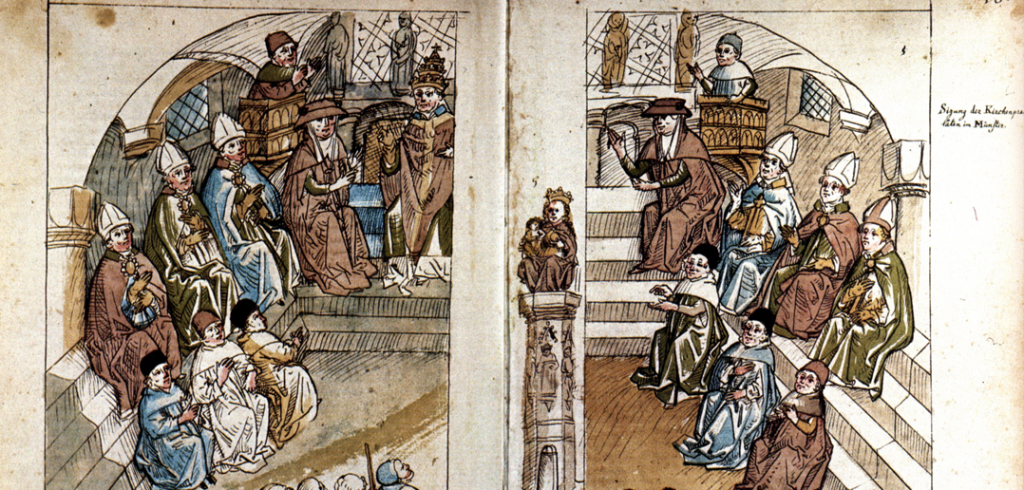 Sizung der Kirchenprä
laten in Münster.